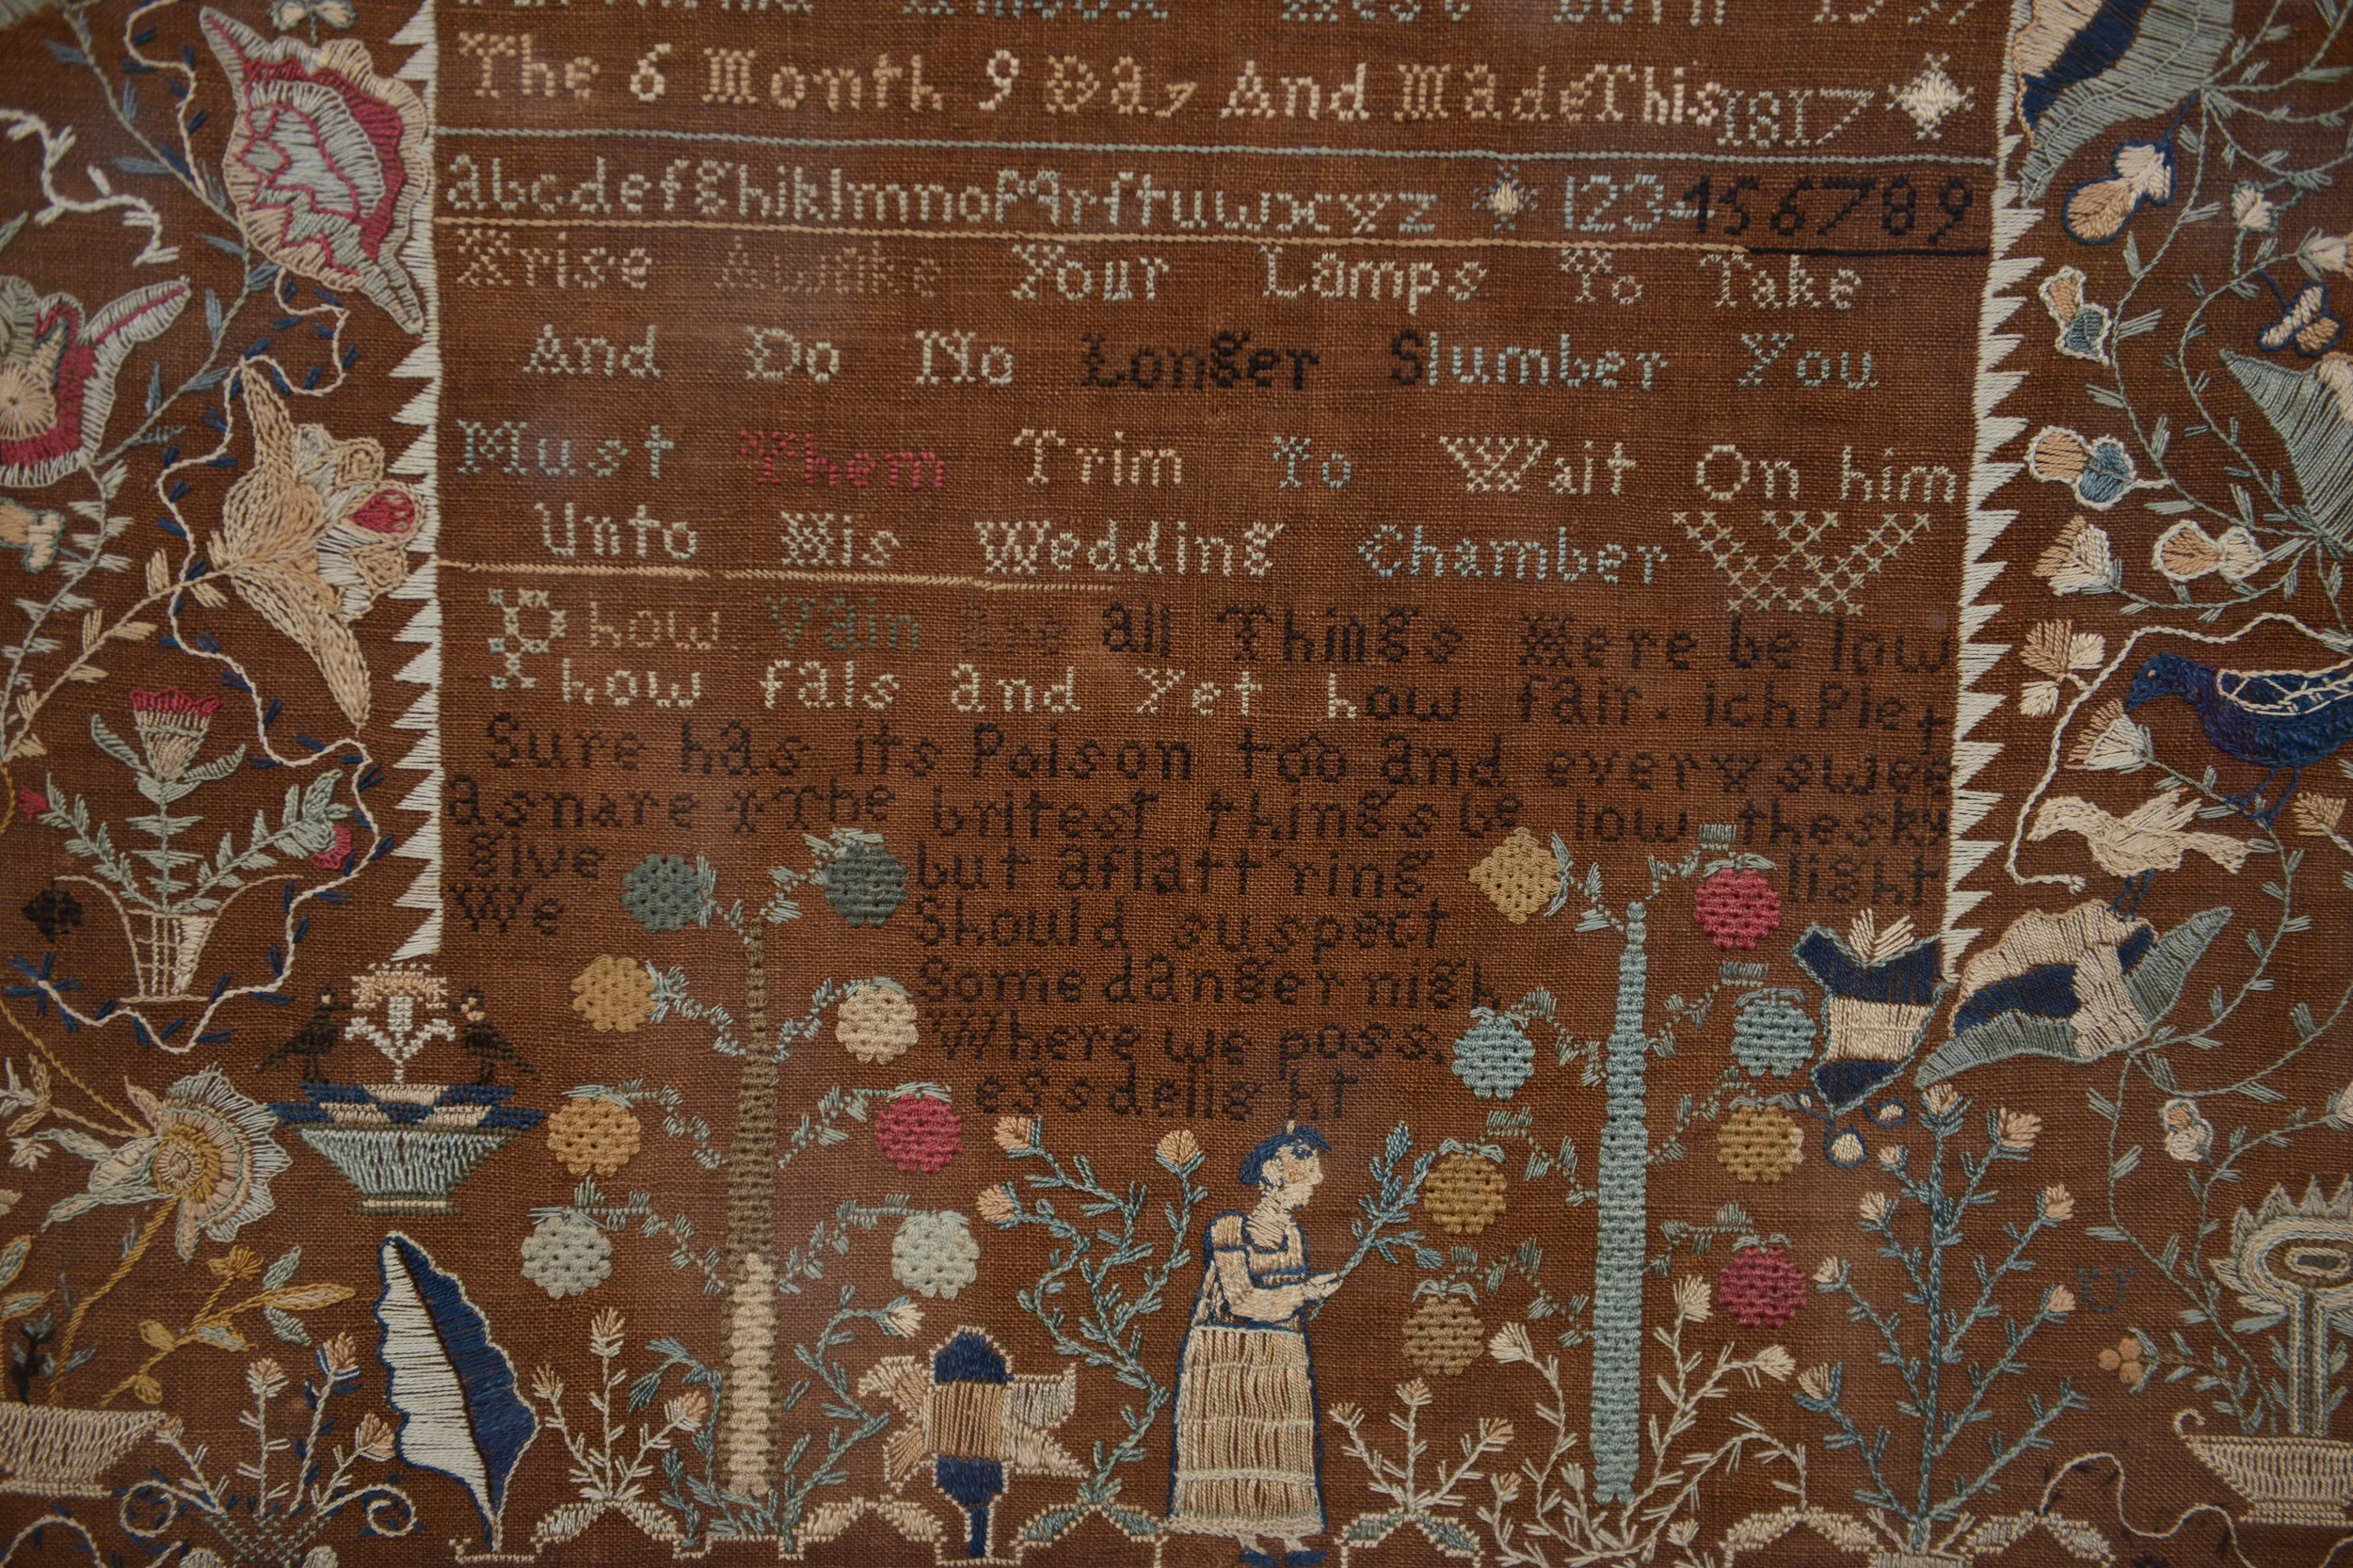 West Born
The 6 Month 9 Day And Made This 1817
abcdefghiklmnopqrſtuwxyz 123456789
Arise Awake Your Lamps To Take
And Do No Longer Slumber You
Must Them Trim To Wait On him
Unto His Wedding Chamber
O how Vain are all Things Here be low
how fals and Yet how fair. ich Ple
Sure has its Poison too and every swee t
a snare The britest things be low the sky
give but a flatt'ring light
We Should suspect
Some danger nigh
Where we poss.
ess delight